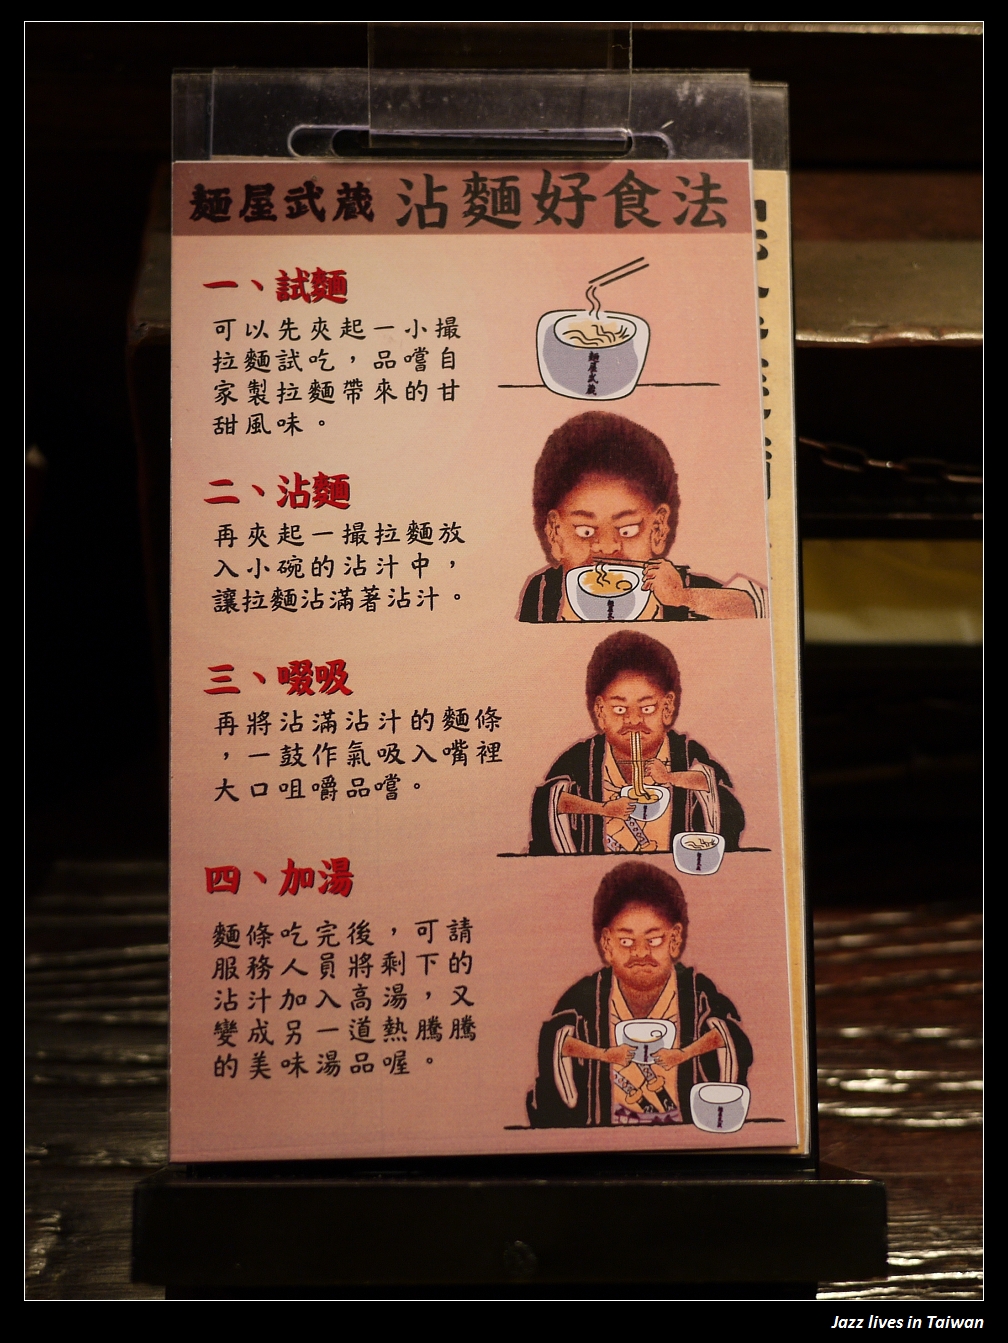 麵屋武蔵 沾麵好食法
一、試麵
可以先夾起一小撮
拉麵試吃，品嚐自
家製拉麵帶來的甘
甜風味。
麵屋武蔵
二、沾麵
再夾起一撮拉麵放
入小碗的沾汁中，
讓拉麵沾滿著沾汁。
三、啜吸
再將沾滿沾汁的麵條
，一鼓作氣吸入嘴裡
大口咀嚼品嚐。
四、加湯
麵條吃完後，可請
服務人員將剩下的
沾汁加入高湯，又
變成另一道熱騰騰
的美味湯品喔。
Jazz lives in Taiwan